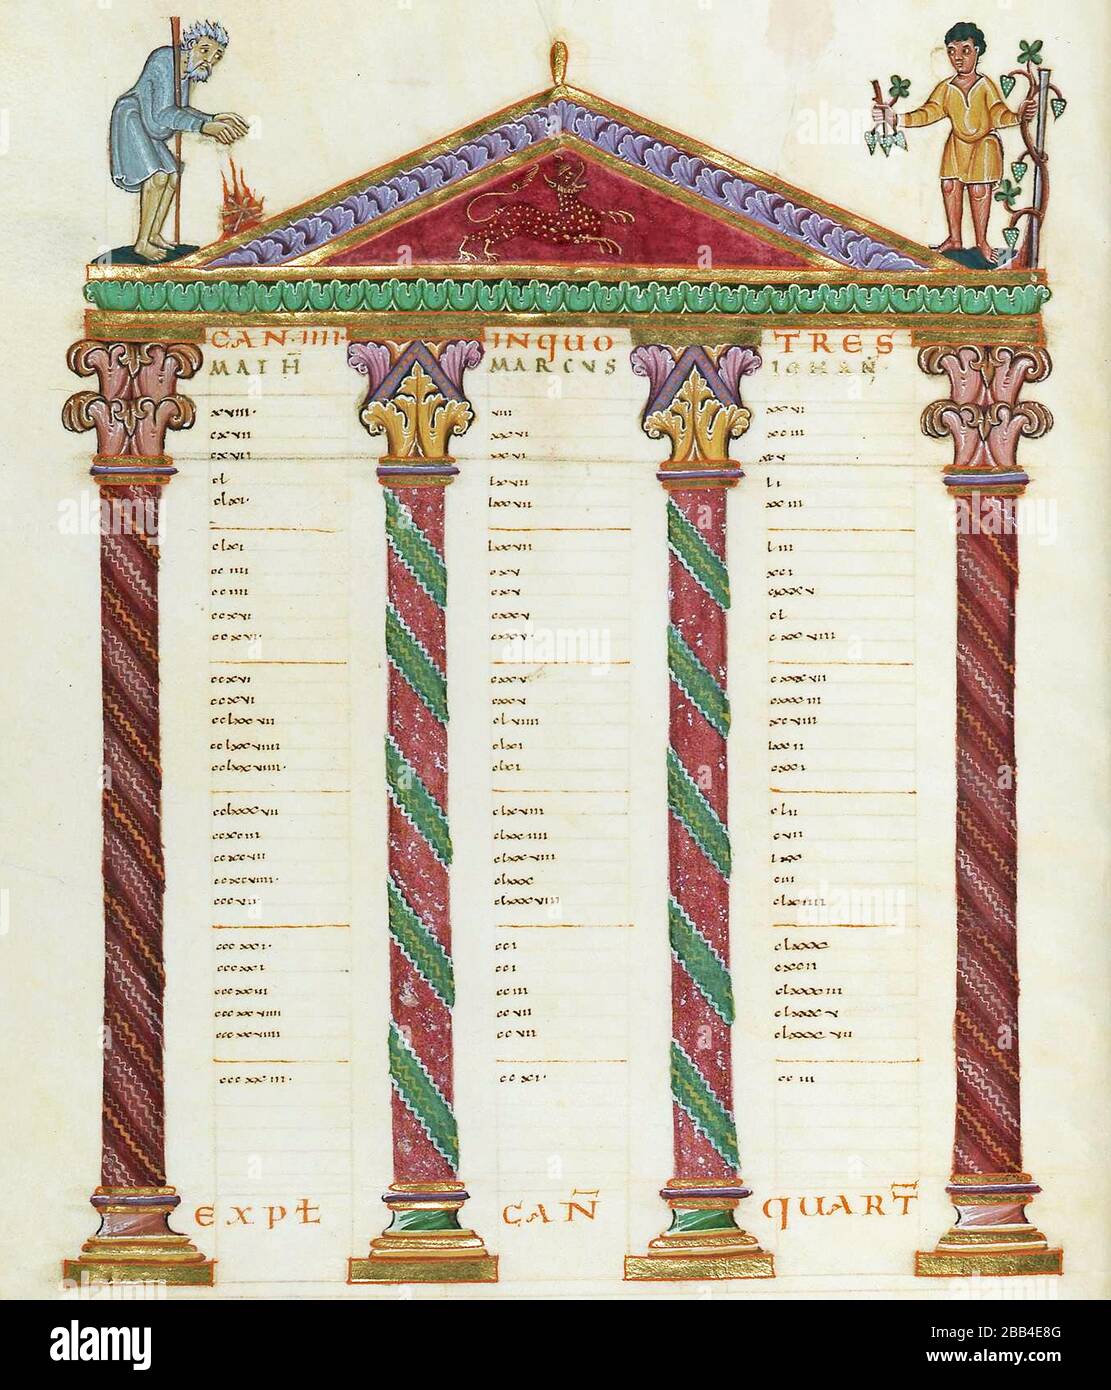 CAN·IIII· INQUO TRES
MATH MARCUS IOHAN
xviii· viii xxvi
cxvii xxvi xciii
cxvii xxvi xcv
cl lxvii li
clxi· lxxvii xxiii
clxi lxxvii liii
cciiii cxv xci
cciiii cxv cxxxv
ccxvi cxxv cl
ccxvi· cxxv· cxxviii
ccxvi cxxv cxxxvii
ccxvi cxxv cxxxiii
cclxxvii clviiii xcviii
cclxxviiii clxi lxxii
cclxxviiii· clxi· cxxi
cclxxxvii clxviii clii
ccxciii clxxiiii cvii
ccxcvii clxxviii lxx
ccxcviiii· clxxx ciii
cccvii clxxxviii clxiiii
cccxxi· cci clxxx
cccxxi cci cxcii
cccxxiii cciii clxxxiii
cccxxviiii ccvii clxxxv
cccxxviiii ccvii clxxxvii
cccxxiii· ccxi· cciii
EXPL CAN QUART
alamy
Image ID: 2BB4E8G
www.alamy.com